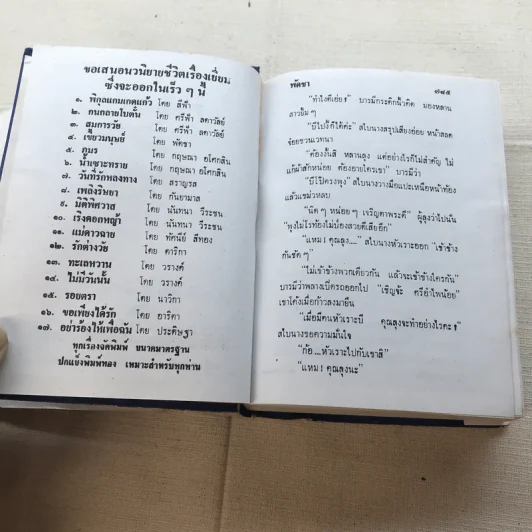 ขอเสนอนวนิยายชีวิตเรื่องเยี่ยม
ซึ่งจะออกในเร็ว ๆ นี้
๑. พิกุลแกมเกดแก้ว โดย สีฟ้า
๒. กนกลายโบตั๋น โดย ศรีฟ้า ลดาวัลย์
๓. สมการวัย โดย ศรีฟ้า ลดาวัลย์
๔. เขี้ยวมนุษย์ โดย พัดชา
๕. ภูมร โดย กฤษณา อโศกสิน
๖. น้ำเซาะทราย โดย กฤษณา อโศกสิน
๗. วันที่รักหลงทาง โดย สราญรส
๘. เพลิงริษยา โดย กันยามาส
๙. มิติพิศวาส โดย นันทนา วีระชน
๑๐. เริงดอกหญ้า โดย นันทนา วีระชน
๑๑. แม่ดาวฉาย โดย ทัศนีย์ สีทอง
๑๒. รักต่างวัย โดย ดาริกา
๑๓. ทะเลหวาน โดย วรางค์
๑๔. ไม่มีวันนั้น โดย วรางค์
๑๕. รอยตรา โดย นาวิกา
๑๖. ขอเพียงได้รัก โดย อาริตา
๑๗. อย่าร้องไห้เพื่อฉัน โดย ประดิษฐา
ทุกเรื่องจัดพิมพ์ ขนาดมาตรฐาน
ปกแข็งพิมพ์ทอง เหมาะสำหรับทุกท่าน
พัดชา ๗๘๕
"ทำไงดีเอ่ย!" บารมีกระดิกนิ้วคิด มองหลาน
สาวยิ้ม ๆ
"บีไปงี้ก็ได้ค่ะ" สไบนางสรุปเสียงอ่อย หน้าสลด
จ๋อยชวนเวทนา
"ต้องงั้นสิ หลานลุง แต่อย่างไรก็ไม่สำคัญ ไม่
แก้ผ้าสักหน่อย ต้องอายใครเขา" บารมีว่า
"บีโป๊ตรงพุง" สไบนางวางมือแปะเหนือหน้าท้อง
แล้วแซ่มวหลบ
"นิด ๆ หน่อย ๆ เจริญตาพระดี" ผู้ลุงว่าไปนั่น
"พุงไม่โรท้องไม่ป่องสวยดีเสียอีก"
"แหม! คุณลุง...." สไบนางหัวเราะออก "เข้าข้าง
กันชัด ๆ"
"ไม่เข้าข้างพวกเดียวกัน แล้วจะเข้าข้างใครกัน"
บารมีว่าพลางเบี่ยงรถออกไป "เชิญจ้ะ ศรีอำไพน้อย"
เขาโค้งเมื่อก้าวลงมายืน
"เมื่อมีคนหัวเราะบี คุณลุงจะทำอย่างไรคะ!"
สไบนางขอความมั่นใจ
"ก้อ....หัวเราะไปกับเขาสิ"
"แหม! คุณลุงนะ"